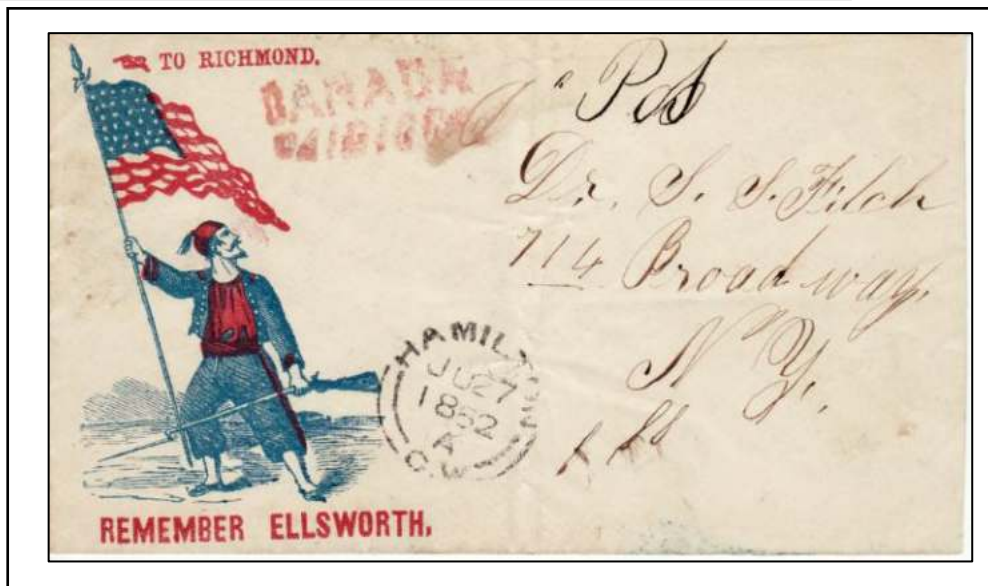 TO RICHMOND.
CANADA
Pd
Dr. S. S. Fitch
714 Broadway.
N Y.
HAMILTON
JU 27
1862
A
C.W
REMEMBER ELLSWORTH.